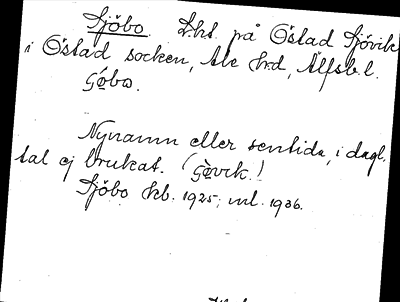 Sjöbo. Lht. på Östad Sjövik
i Östad socken, Ale hrd, Älfsb. l.
Gǿbo.
Nynamn eller sentida, i dagl.
tal ej brukat. (Gøvik!)
Sjöbo kb. 1925; ml. 1936.